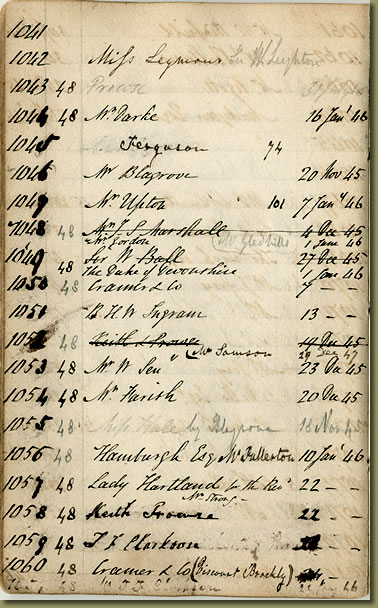 1041
1042 Miss Seymour Sir W. Leighton
1043 48 Prowse
1044 48 Mr. Darke 16 Jany 46
1045 Ferguson 74
1046 Mr Blagrove 20 Nov 45
1047 Mr. Upton 101 7 Jany 46
1048 48 Mrs. J. S. Marshall 4 Dec 45
Mr. Gordon (Mr Gledhill) 1 June 46
1049 48 Sir W. Ball 27 Dec 45
The Duke of Devonshire 1 June 46
1050 48 Cramer & Co 7 — —
1051 B. H. W. Ingram 13 — —
1052 48 Keith & Prowse 19 Dec 45
" (Mr Samson 29 Dec 47
1053 48 Mr W. Sen 23 Dec 45
1054 48 Mr. Farish 20 Dec 45
1055 48 Miss by Blagrove 18 Nov 45
1056 48 Hamburgh Esq Mr Fullerton 10 Jany 46
1057 48 Lady Hartland for the Revd 22 — —
Mr Strong
1058 48 Keith Prowse 22 — —
1059 48 T. F. Clarkson
1060 48 Cramer & Co (Viscount Brackly)
48